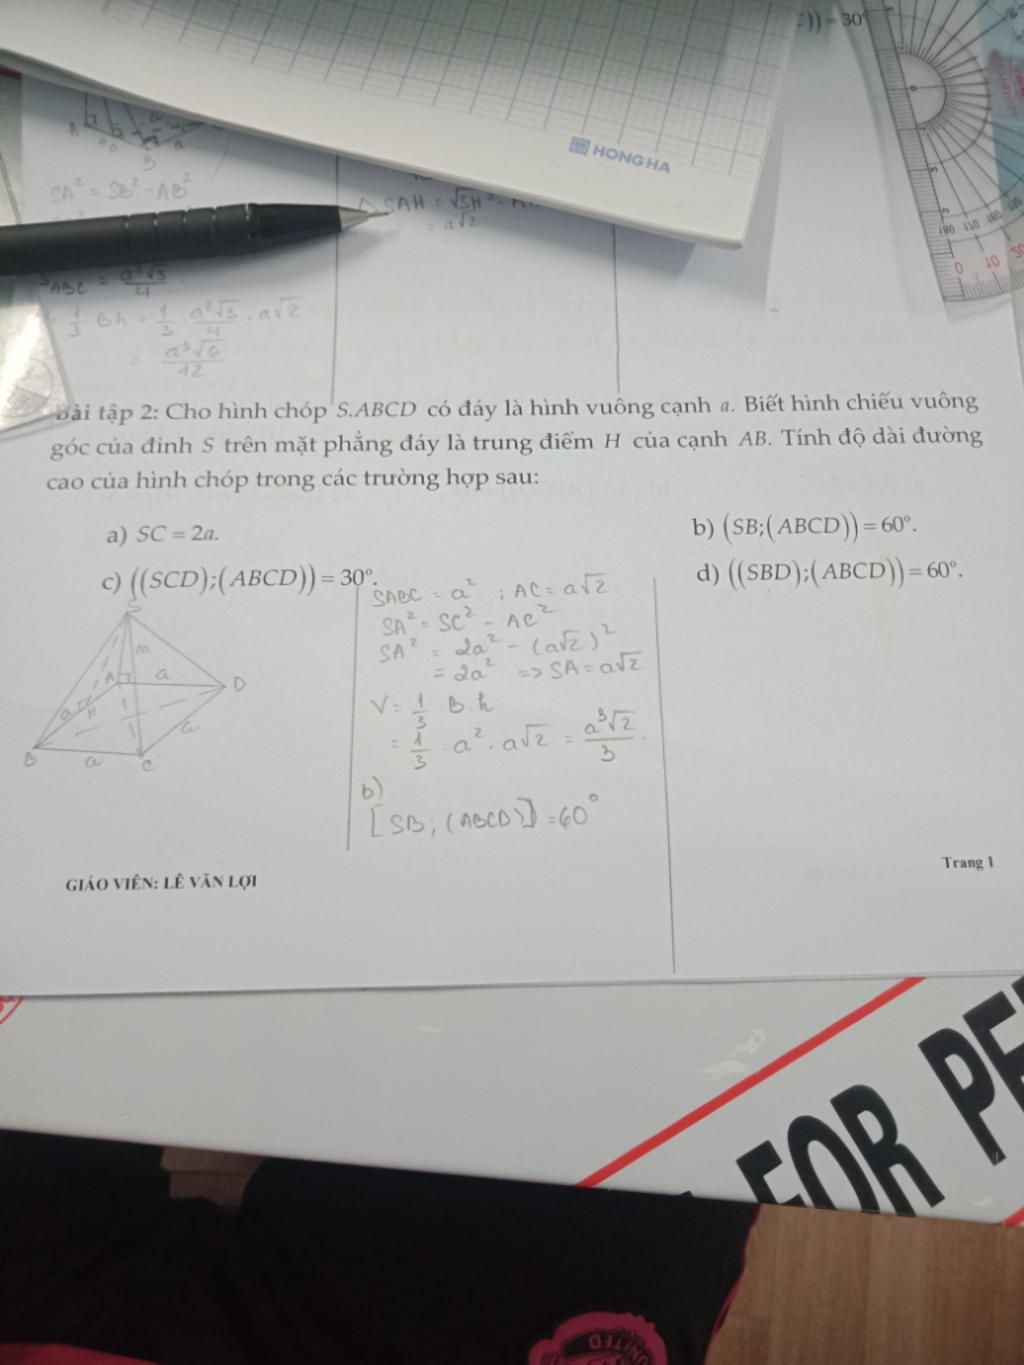 )) = 30°
HONG HA
A a B a
SA² = SB² - AB²
SAH = √SH² -
= a√2
ABC = a²√3/4
1/3 Bh = 1/3 . a²√3/4 . a√2
= a³√6/12
Bài tập 2: Cho hình chóp S.ABCD có đáy là hình vuông cạnh a. Biết hình chiếu vuông
góc của đỉnh S trên mặt phẳng đáy là trung điểm H của cạnh AB. Tính độ dài đường
cao của hình chóp trong các trường hợp sau:
a) SC = 2a.
b) (SB;(ABCD)) = 60°.
c) ((SCD);(ABCD)) = 30°.
d) ((SBD);(ABCD)) = 60°.
S
m
A a D
a H
a
B a C
SABC = a² ; AC = a√2.
SA² = SC² - AC²
SA² = 2a² - (a√2)²
= 2a² => SA = a√2
V = 1/3 B.h
= 1/3 . a² . a√2 = a³√2/3 .
b)
[SB; (ABCD)] = 60°
GIÁO VIÊN: LÊ VĂN LỢI
Trang 1
180 170 160 150
0 10
FOR PE
UNITED